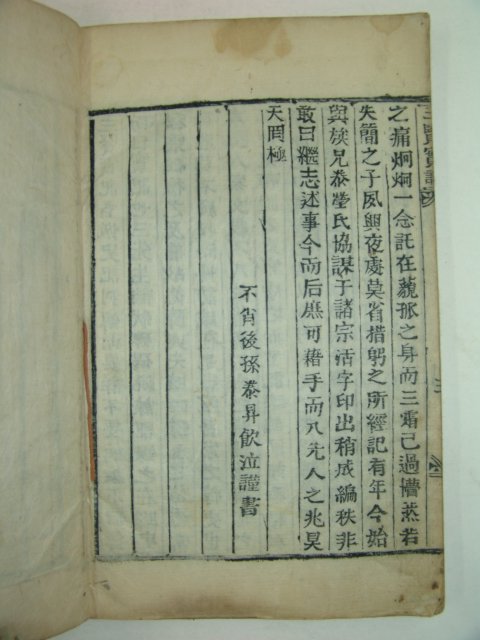 之痛炯炯一念託在藐孤之身而三霜已過懵蒸若
失簡之子夙興夜處莫省措躬之所經記有年今始
與族兄泰瑩氏協謀于諸宗活字印出稍成編秩非
敢曰繼志述事今而后庶可藉手而八先人之兆昊
天罔極
不肖後孫泰昇飮泣謹書